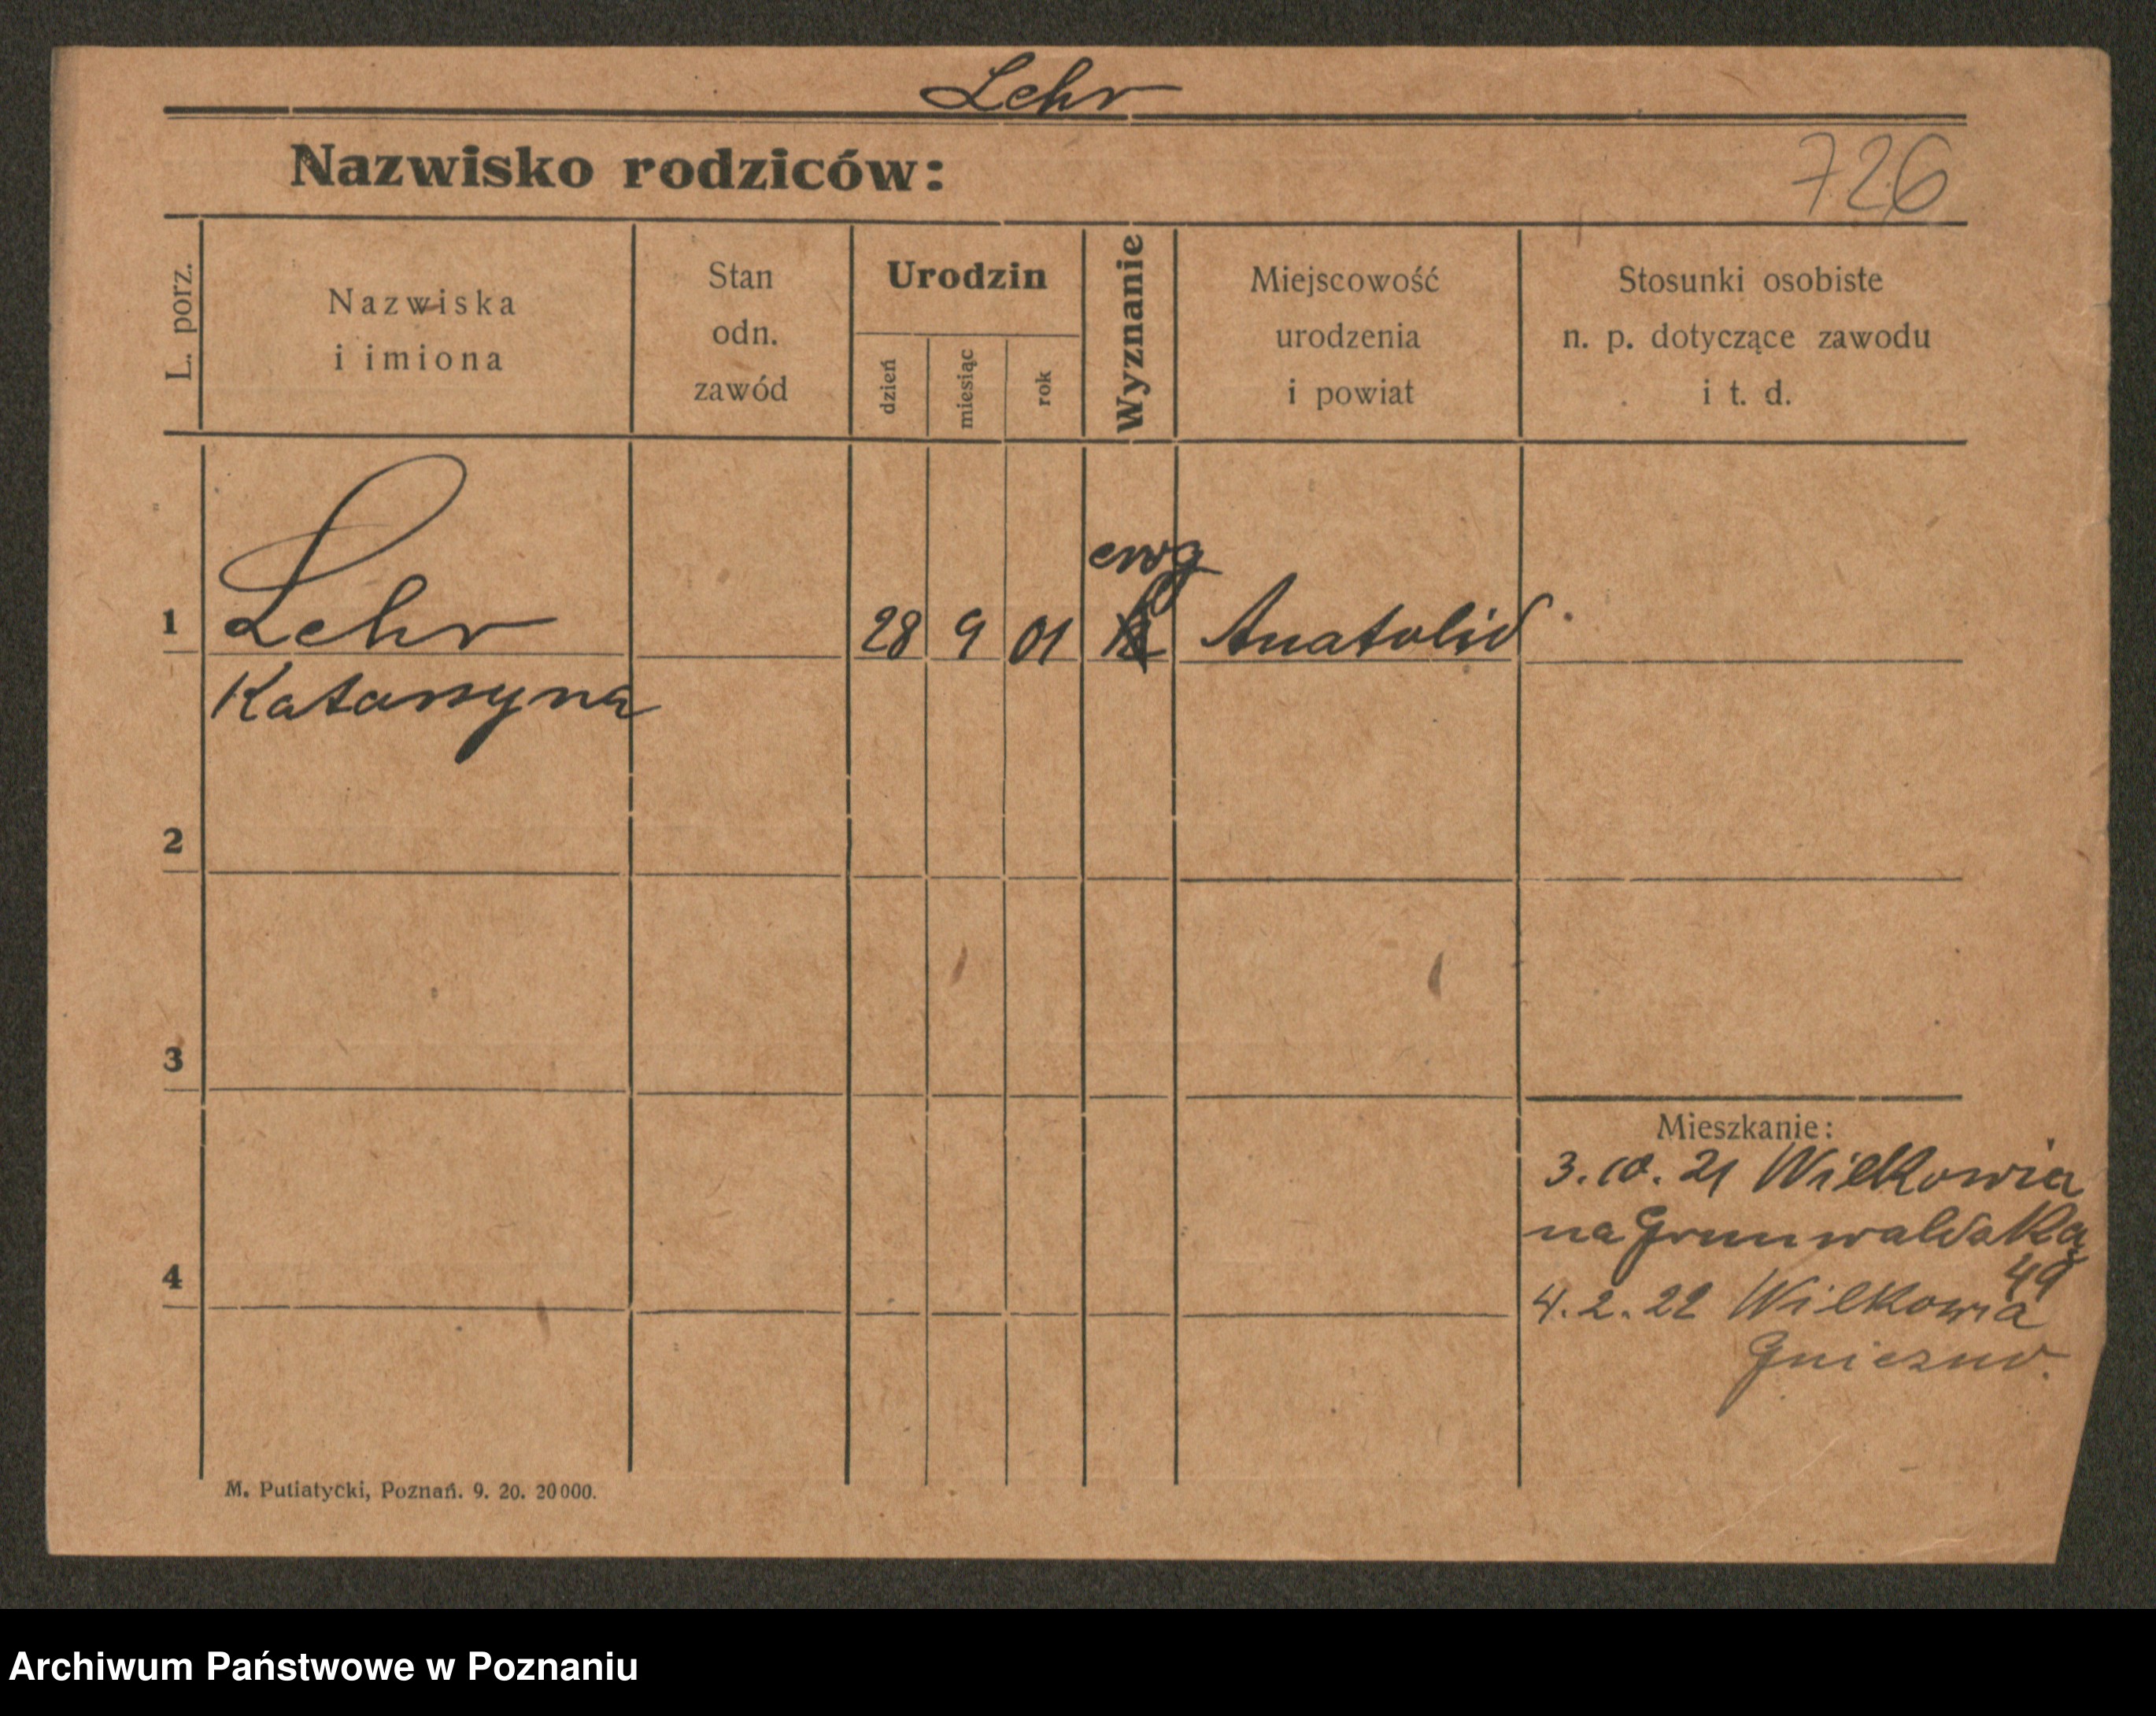 Lehr
Nazwisko rodziców:
726
L. porz.
Nazwiska
i imiona
Stan
odn.
zawód
Urodzin
dzień
miesiąc
rok
Wyznanie
Miejscowość
urodzenia
i powiat
Stosunki osobiste
n. p. dotyczące zawodu
i t. d.
ewg
1 Lehr 28 9 01 Anatolid
Katarzyna
2
3
Mieszkanie:
3.10.21 Wilkowia
na Grunwaldską
49
4
4.2.22 Wilkowia
Gniezno.
M. Putiatycki, Poznań. 9. 20. 20000.
Archiwum Państwowe w Poznaniu